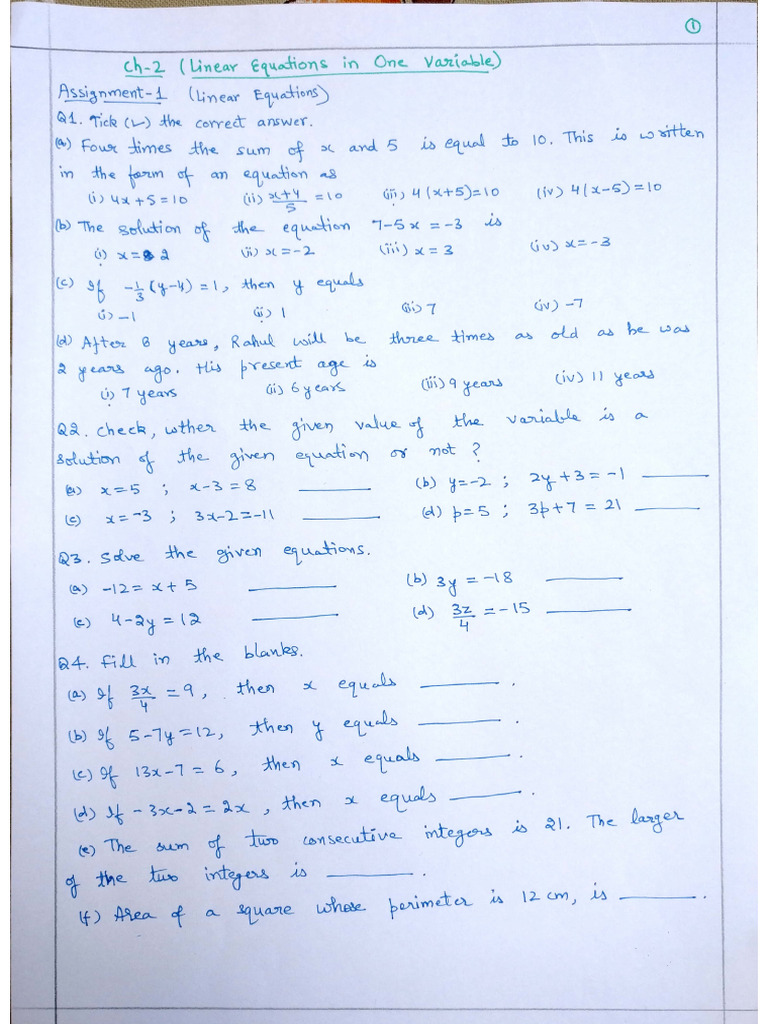 1
Ch-2 (Linear Equations in One Variable)
Assignment-1 (Linear Equations)
Q1. Tick (✓) the correct answer.
(a) Four times the sum of x and 5 is equal to 10. This is written
in the form of an equation as
(i) 4x+5=10 (ii) (x+4)/5 =10 (iii) 4(x+5)=10 (iv) 4(x-5)=10
(b) The solution of the equation 7-5x=-3 is
(i) x=2 (ii) x=-2 (iii) x=3 (iv) x=-3
(c) If -1/3(y-4)=1, then y equals
(i) -1 (ii) 1 (iii) 7 (iv) -7
(d) After 6 years, Rahul will be three times as old as he was
2 years ago. His present age is
(i) 7 years (ii) 6 years (iii) 9 years (iv) 11 years
Q2. Check, wther the given value of the variable is a
solution of the given equation or not?
(a) x=5 ; x-3=8 ______ (b) y=-2 ; 2y+3=-1 ______
(c) x=-3 ; 3x-2=-11 ______ (d) p=5 ; 3p+7=21 ______
Q3. Solve the given equations.
(a) -12=x+5 ______ (b) 3y=-18 ______
(c) 4-2y=12 ______ (d) 3z/4=-15 ______
Q4. Fill in the blanks.
(a) If 3x/4=9, then x equals ______.
(b) If 5-7y=12, then y equals ______.
(c) If 13x-7=6, then x equals ______.
(d) If -3x-2=2x, then x equals ______.
(e) The sum of two consecutive integers is 21. The larger
of the two integers is ______.
(f) Area of a square whose perimeter is 12 cm, is ______.